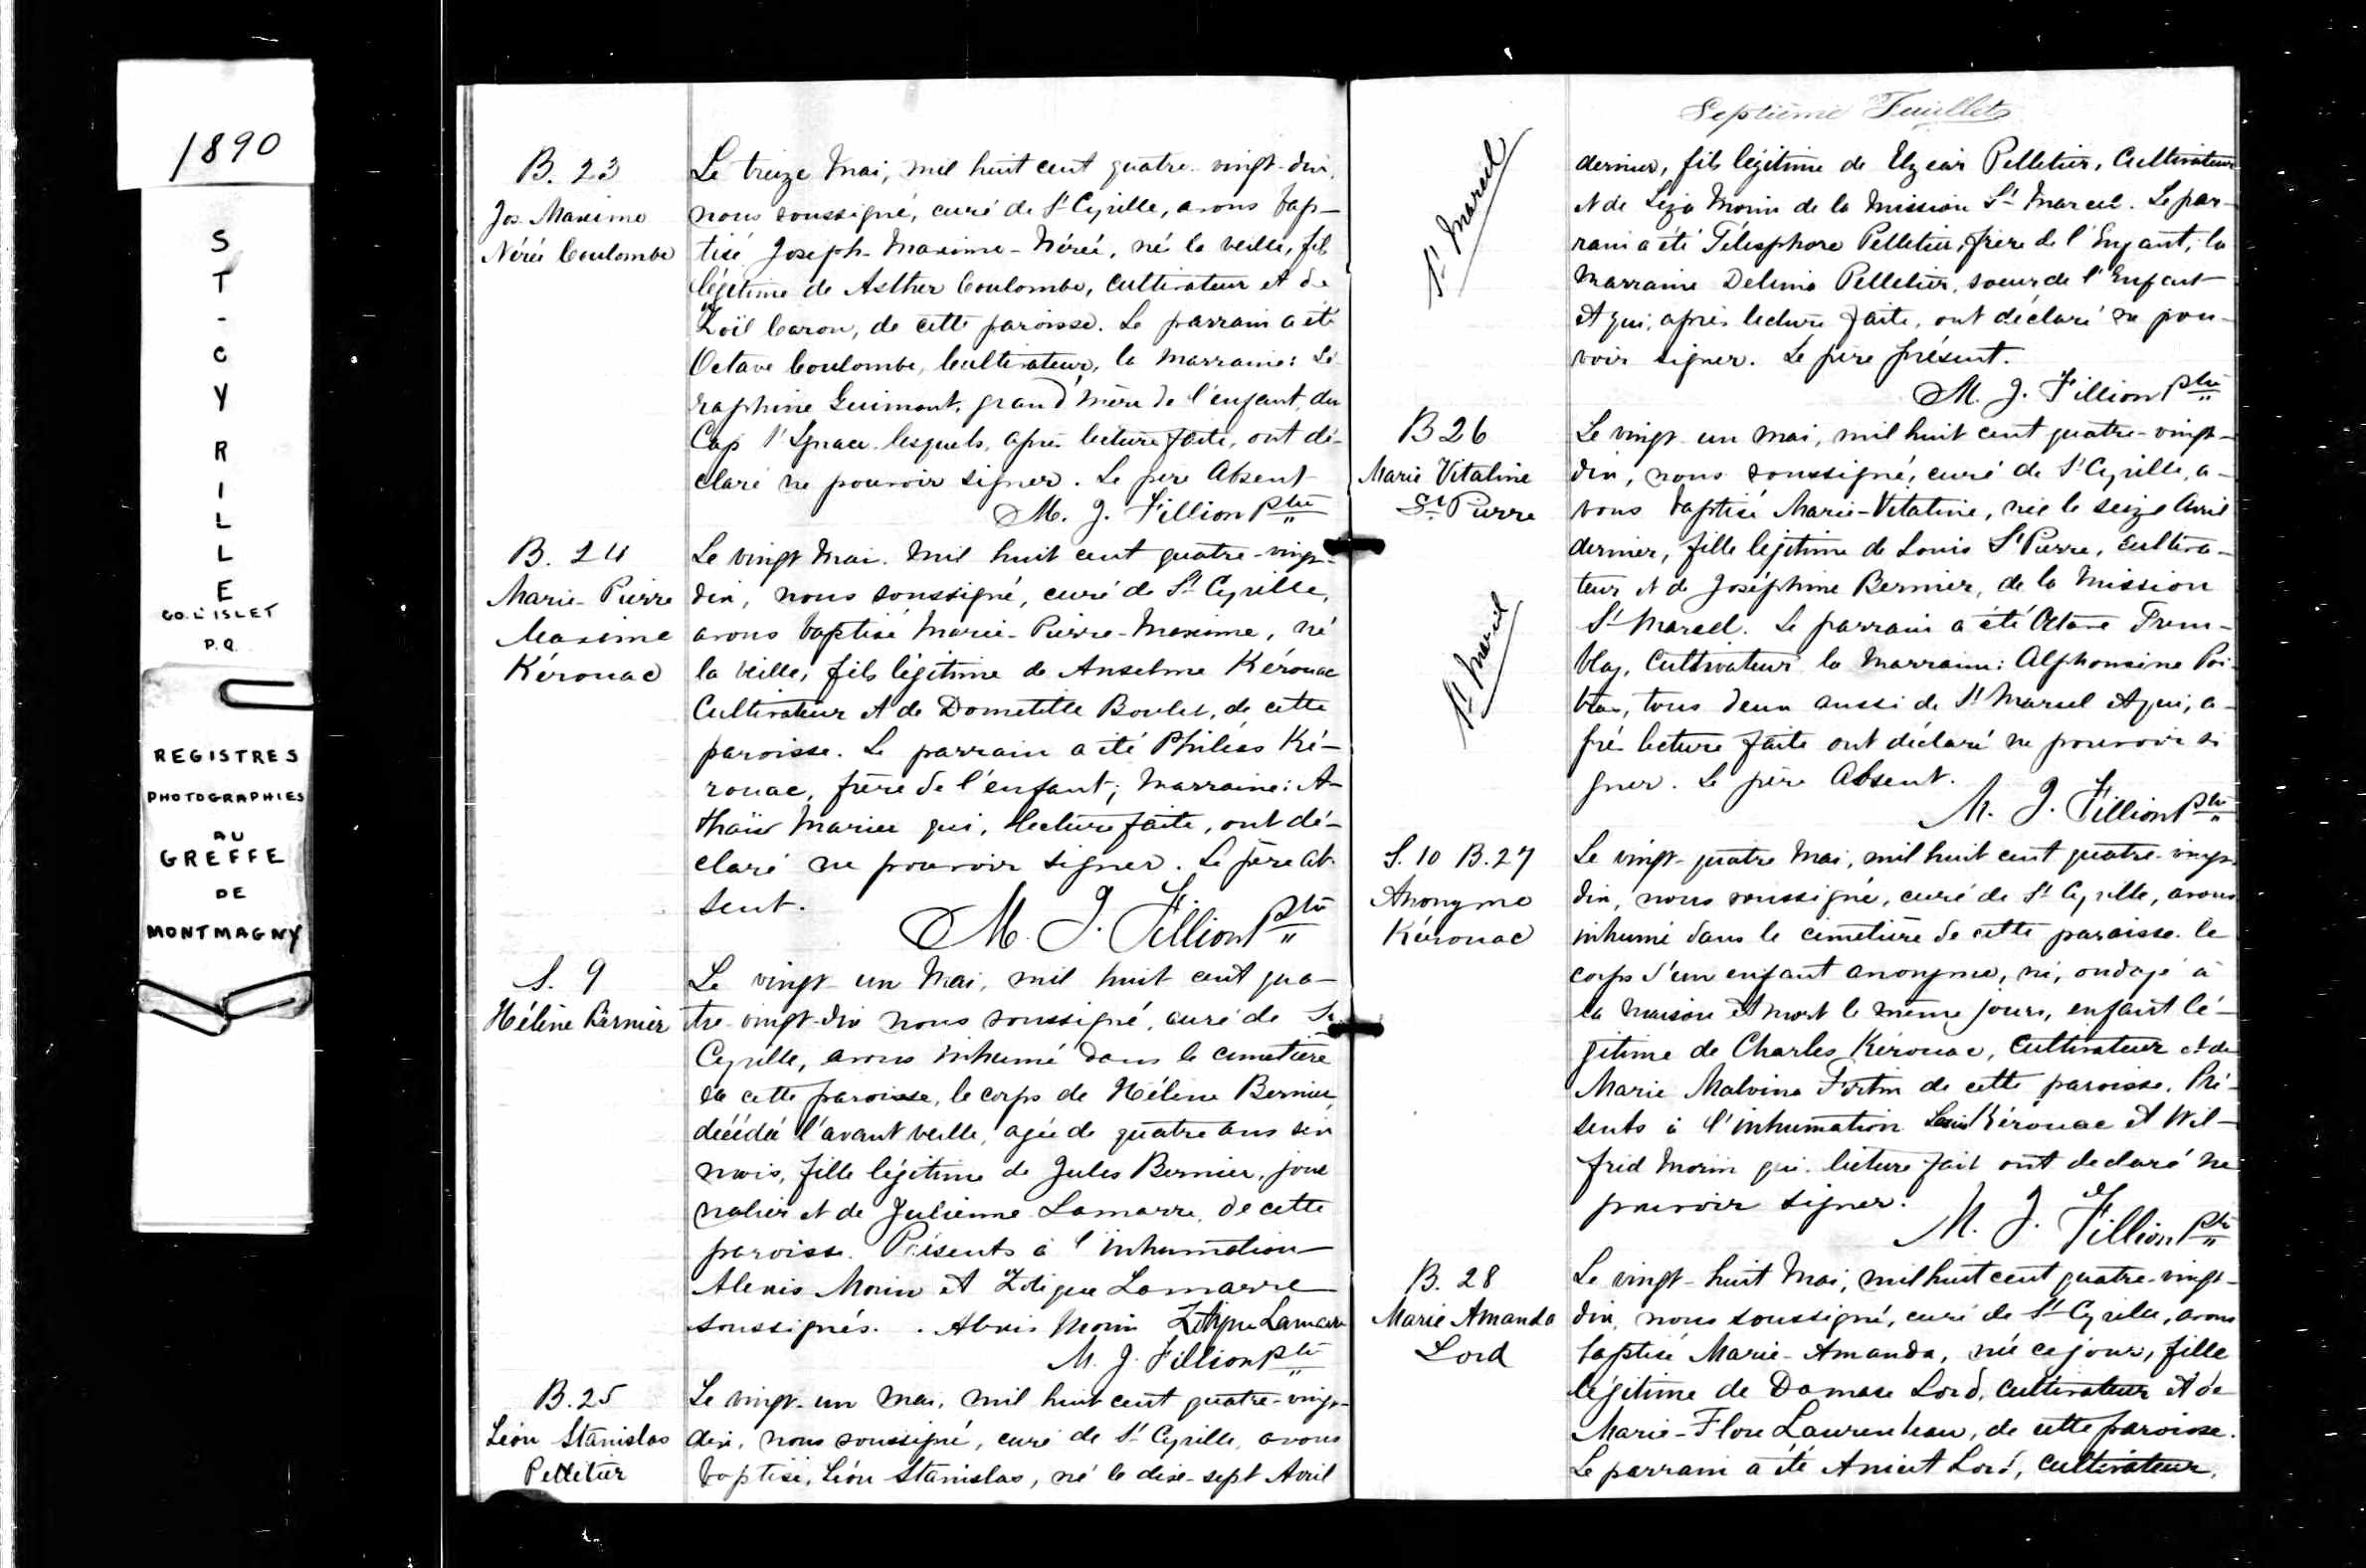 1890
ST-CYRILLE
CO. L'ISLET
P.Q.
REGISTRES
PHOTOGRAPHIES
AU
GREFFE
DE
MONTMAGNY
B. 23
Jos. Maxime
Nérée Coulombe
Le treize Mai, mil huit cent quatre-vingt-dix,
nous soussigné, curé de St Cyrille, avons bap-
tisé Joseph-Maxime-Nérée, né la veille, fils
légitime de Asther Coulombe, cultivateur et de
Zoïl Caron, de cette paroisse. Le parrain a été
Octave Coulombe, Cultivateur, la marraine: Sé-
raphine Guimont, grand'mère de l'enfant, du
Cap St Ignace lesquels, après lecture faite, ont dé-
claré ne pouvoir signer. Le père Absent
M. J. Fillion Ptre
B. 24
Marie-Pierre
Maxime
Kérouac
Le vingt Mai, mil huit cent quatre-vingt-
dix, nous soussigné, curé de St Cyrille,
avons baptisé Marie-Pierre-Maxime, né
la veille, fils légitime de Anselme Kérouac
Cultivateur et de Dometille Boulet, de cette
paroisse. Le parrain a été Philéas Ké-
rouac, frère de l'enfant; Marraine: A-
thaïs Marier qui, lecture faite, ont dé-
claré ne pouvoir signer. Le père ab-
sent.
M. J. Fillion Ptre
S. 9
Hélène Bernier
Le vingt-un Mai, mil huit cent qua-
tre-vingt-dix nous soussigné, curé de St
Cyrille, avons inhumé dans le cimetière
de cette paroisse, le corps de Hélène Bernier
décédée l'avant veille, agée de quatre ans six
mois, fille légitime de Jules Bernier, jour
nalier et de Julienne Lamarre, de cette
paroisse. Présents à l'inhumation
Alexis Morin et Zétique Lamarre
soussignés. Alexis Morin Zétique Lamarre
M. J. Fillion Ptre
B. 25
Léon Stanislas
Pelletier
Le vingt-un Mai, mil huit cent quatre-vingt-
dix, nous soussigné, curé de St Cyrille, avons
baptisé, Léon Stanislas, né le dix-sept Avril
Septième Feuillet
St Marcel
dernier, fils légitime de Elzéar Pelletier, Cultivateur
et de Liza Morin de la Mission St Marcel. Le par-
rain a été Télesphore Pelletier, frère de l'Enfant; la
Marraine Delima Pelletier, soeur de l'Enfant
et qui, après lecture faite, ont déclaré ne pou-
voir signer. Le père présent.
M. J. Fillion Ptre
B 26
Marie Vitaline
St Pierre
St Marcel
Le vingt-un Mai, mil huit cent quatre-vingt-
dix, nous soussigné, curé de St Cyrille, a-
vons baptisé Marie-Vitaline, née le seize Avril
dernier, fille légitime de Louis St Pierre, Cultiva-
teur et de Joséphine Bernier, de la Mission
St Marcel. Le parrain a été Octave Trem-
blay, Cultivateur la Marraine: Alphonsine
tous deux aussi de St Marcel et qui, a-
près lecture faite ont déclaré ne pouvoir si
gner. Le père Absent.
M. J. Fillion Ptre
S. 10 B. 27
Anonyme
Kérouac
Le vingt-quatre Mai, mil huit cent quatre-vingt-
dix, nous soussigné, curé de St Cyrille, avons
inhumé dans le cimetière de cette paroisse le
corps d'un enfant anonyme, né, ondoyé à
la maison et mort le même jour, enfant lé-
gitime de Charles Kérouac, Cultivateur et de
Marie Malvina Fortin de cette paroisse. Pré-
sents à l'inhumation Louis Kérouac et Wil-
frid Morin qui lecture fait ont déclaré ne
pouvoir signer.
M. J. Fillion Ptre
B. 28
Marie Amanda
Lord
Le vingt-huit Mai, mil huit cent quatre-vingt-
dix, nous soussigné, curé de St Cyrille, avons
baptisé Marie-Amanda, née ce jour, fille
légitime de Damase Lord, Cultivateur et de
Marie-Flore de cette paroisse.
Le parrain a été Lord, Cultivateur,